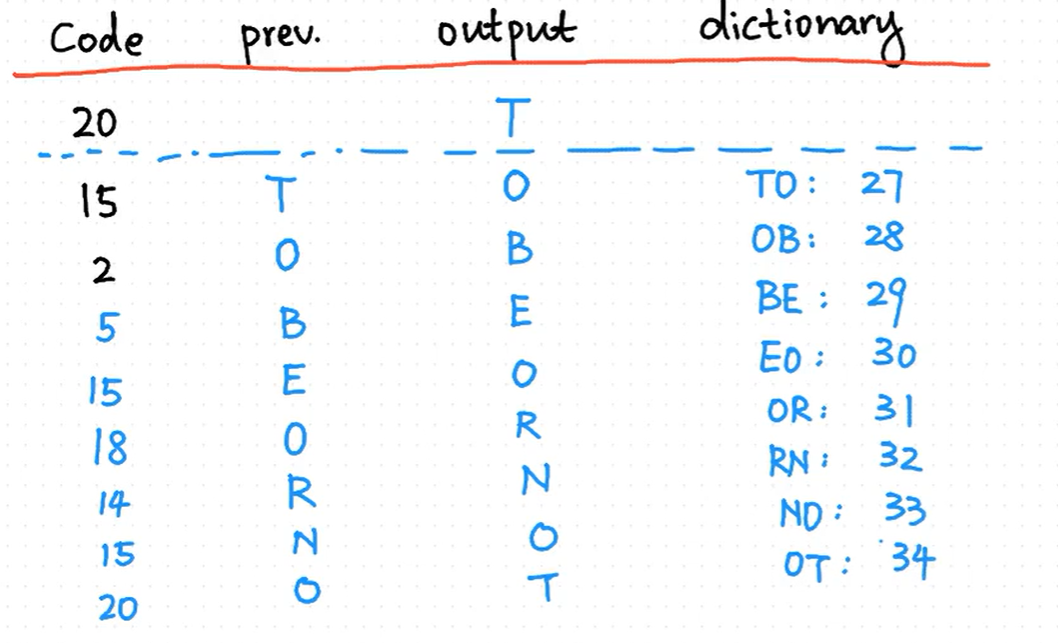 Code prev. output dictionary
20 T
15 T O TO: 27
2 O B OB: 28
5 B E BE: 29
15 E O EO: 30
18 O R OR: 31
14 R N RN: 32
15 N O NO: 33
20 O T OT: 34